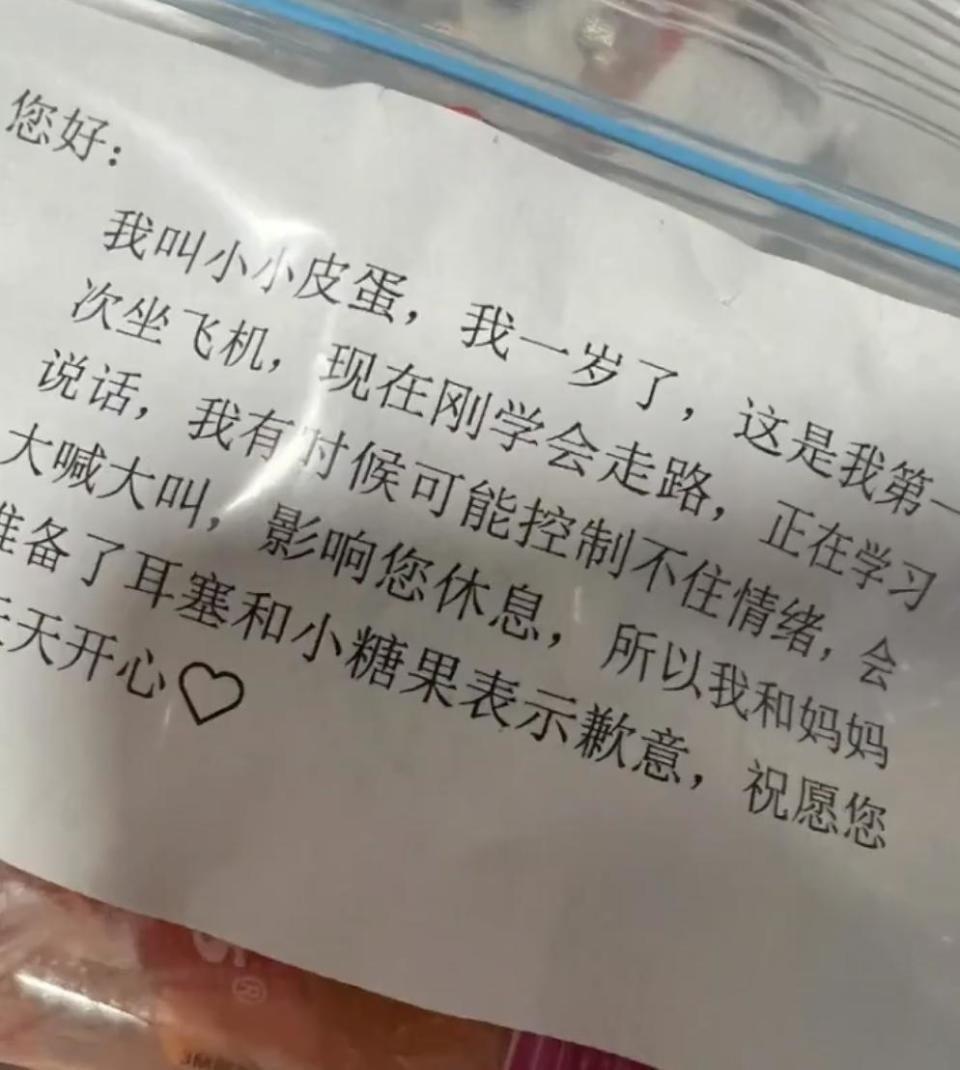 您好：
我叫小小皮蛋，我一岁了，这是我第一
次坐飞机，现在刚学会走路，正在学习
说话，我有时候可能控制不住情绪，会
大喊大叫，影响您休息，所以我和妈妈
准备了耳塞和小糖果表示歉意，祝愿您
天天开心♡